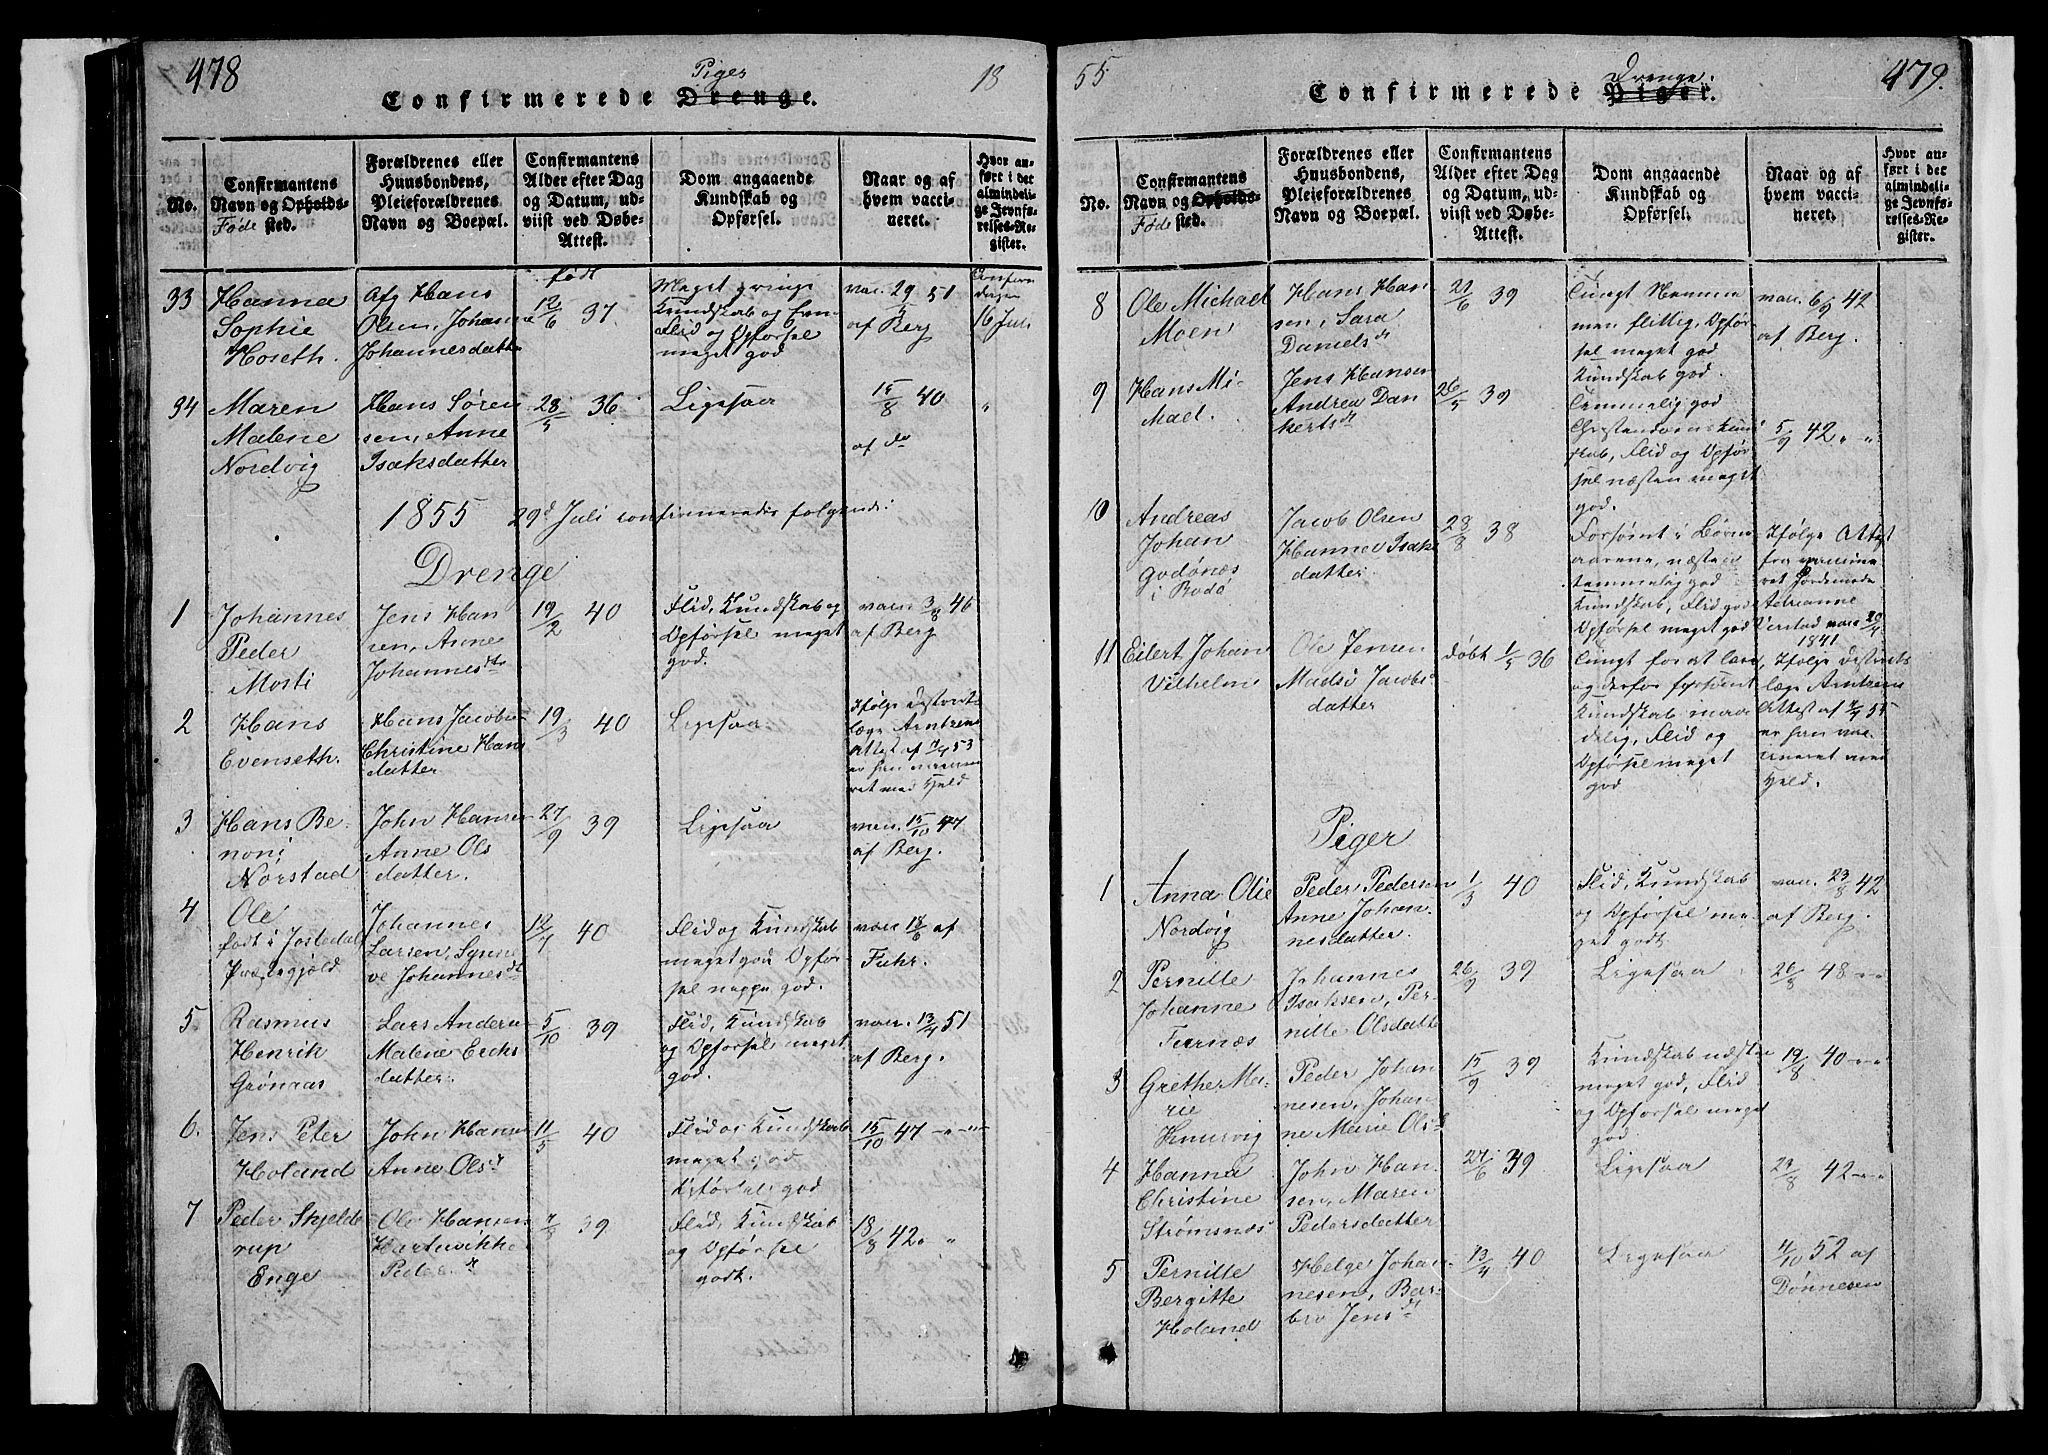 478
Piger
18
Confirmerede Drenge.
No.
Confirmantens
Navn og Opholds-
Føde sted.
Forældrenes eller
Huusbondens,
Pleieforældrenes
Navn og Boepæl.
Confirmantens
Alder efter Dag
og Datum, ud-
viist ved Døbe-
Attest.
Dom angaaende
Kundskab og
Opførsel.
Naar og af
hvem vacci-
neret.
Hvor an-
ført i det
almindeli-
ge Jevnfø-
relses-Re-
gister.
33
Hanna
Sophie
Hoseth.
Afg Hans
Olsen, Johanna
Johannesdatter
født
12/6 37.
Meget ringe
Kundskab og Evner
Flid og Opførsel
meget god
vac. 29/5 51
af Berg
16 Juli
34
Maren
Malene
Nordvig
Hans Søren
sen, Anne
Isaksdatter
28/5 36
Ligesaa
15/8 40
af do
"
1855 29d Juli confirmeredes følgende:
Drenge
1
Johannes
Peder
Mosti
Jens Han
sen, Anne
Johannesdtr
19/2 40
Flid, Kundskab og
Opførsel meget
god.
vacc. 3/8 46
af Berg
2
Hans
Evenseth.
Hans Jacobs
Christine Hans
datter
19/3 40
Ligesaa
Ifølge Districts
læge Arntzens
Attest af 7/4 53
er han vaccine
ret med Held
3
Hans Be
noni
Norstad
John Hansen
Anne Ols
datter.
27/9 39
Ligesaa
vac. 15/10 47
af Berg.
4
Ole
født i Jostedal
Præstegjeld
Johannes
Larsen, Synne
ve Johannesdt
12/7 40
Flid og Kundskab
meget god Opfør
sel neppe god.
vacc 18/6 af
Fuhr.
5
Rasmus
Henrik
Grønaas
Lars Anders
Malene Erichs
datter.
5/10 39
Flid, Kundskab
og Opførsel meget
god.
vac. 13/4 51
af Berg.
6.
Jens Peter
Holand
John Hansen
Anne Olsdt
11/5 40
Flid og Kundskab
meget god
Opførsel god
15/10 47 — " — " —
7
Peder Skjelde
rup
Enge
Ole Hansen
Hartvikke
Pedersdt
7/8 39
Flid, Kundskab
og Opførsel
godt.
18/8 42 " "
55
Drenge.
479.
Confirmerede Piger.
No.
Confirmantens
Navn og Opholds-
Føde sted.
Forældrenes eller
Huusbondens,
Pleieforældrenes
Navn og Boepæl.
Confirmantens
Alder efter Dag
og Datum, ud-
viist ved Døbe-
Attest.
Dom angaaende
Kundskab og
Opførsel.
Naar og af
hvem vacci-
neret.
Hvor an-
ført i det
almindeli-
ge Jevnfø-
relses-Re-
gister.
8
Ole Michael
Moen
Hans Han
sen, Sara
Danielsdt
21/6 39
Tungt Nemme
men flittig, Opfør
sel meget god
Kundskab god.
vac. 6/9 42
af Berg.
9
Hans Mi-
kael.
Jens Hansen
Andrea Dan
kertsdt
26/5 39
Temmelig god
Christendomskund
skab, Flid og Opfør
sel næsten meget
god.
5/9 42 " - "
10
Andreas
Johan
Godønæs
i Bodø
Jacob Olsen
Hanna Isaks
datter
28/8 38
Forsømt i Børne
aarene, næsten
temmelig god
Kundskab, Flid god
Opførsel meget god
Ifølge Attest
fra
Jordemode
Adrianne
1841
11
Eilert Johan
Vilhelm
Ole Jensen
Jacobs
datter
døbt 1/5 36
Tungt for at lære
og derfor forsømt
Kundskab maa
delig, Flid og
Opførsel meget
god
Ifølge Districts
læge Arntzens
Attest af 7/4 55
er han vac
cineret med
Held.
Piger
1
Anna Olie
Nordvig
Peder Pedersen
Anne Johan
nesdatter.
1/3 40
Flid, Kundskab
og Opførsel me
get godt
vac. 23/8 42
af Berg.
2
Pernille
Johanne
Furnæs
Johannes
Isaksen, Per-
nille Olsdatter
26/9 39
Ligesaa
26/8 48 - " - "
3
Grethe Ma-
rie
Knarvig
Peder Johan
nesen, Johan
ne Marie Olsdt
15/9 39
Kundskab næsten
meget god, Flid
og Opførsel meget
god.
19/8 40 - " - "
4
Hanna
Christine
Strømsnæs
John Han
sen, Maren
Pedersdatter
27/6 39
Ligesaa
23/8 42 - " - "
5
Pernille
Bergitte
Holand
Helge Johan
nesen, Bar
bro Jensdt
13/4 40
Ligesaa
4/10 52 af
Dønnesen